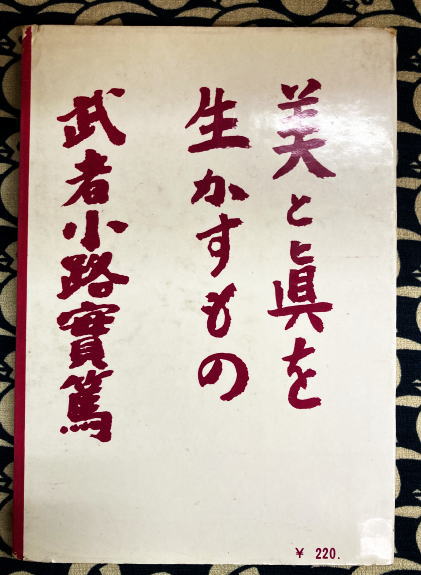 美と眞を
生かすもの
武者小路實篤
¥ 220.